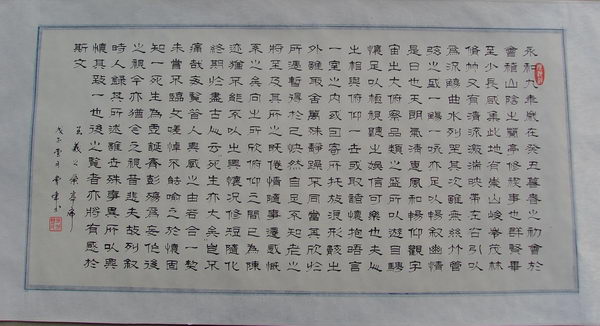 永和九年歲在癸丑暮春之初會於
會稽山陰之蘭亭修禊事也群賢畢
至少長咸集此地有崇山峻嶺茂林
脩竹又有清流激湍映帶左右引以
為流觴曲水列坐其次雖無絲竹管
弦之盛一觴一詠亦足以暢敘幽情
是日也天朗氣清惠風和暢仰觀宇
宙之大俯察品類之盛所以遊目騁
懷足以極視聽之娛信可樂也夫人
之相與俯仰一世或取諸懷抱晤言
一室之內或因寄所托放浪形骸之
外雖取舍萬殊靜躁不同當其欣於
所遇暫得於己快然自足不知老之
將至及其所之既倦情隨事遷感慨
系之矣向之所欣俯仰之間已為陳
迹猶不能不以之興懷況修短隨化
終期於盡古人云死生亦大矣豈不
痛哉每覽昔人興感之由若合一契
未嘗不臨文嗟悼不能喻之於懷固
知一死生為虛誕齊彭殤為妄作後
之視今亦猶今之視昔悲夫故列敘
時人錄其所述雖世殊事異所以興
懷其致一也後之覽者亦將有感於
斯文
王羲之蘭亭序
戊子